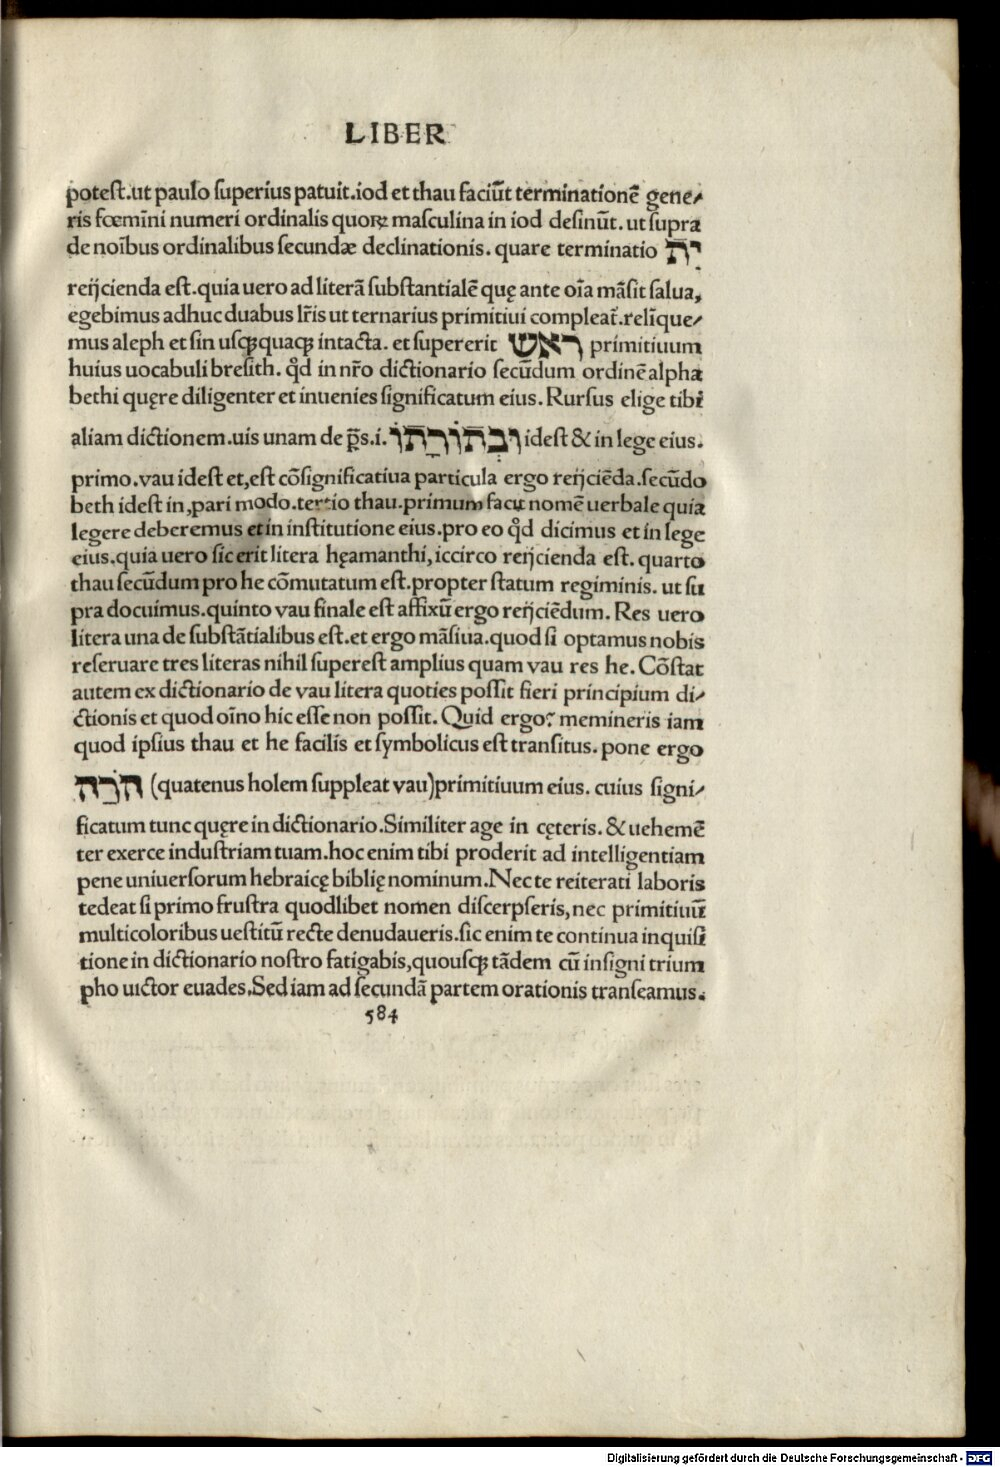 LIBER
poteſt.ut paulo ſuperius patuit.iod et thau faciũt terminationẽ gene⸗
ris fœmĩni numeri ordinalis quoꝝ maſculina in iod deſinũt.ut ſupra
de noĩbus ordinalibus ſecundæ declinationis. quare terminatio יִת
reijcienda eſt.quia uero ad literã ſubſtantialẽ quę ante oĩa mãſit ſalua,
egebimus adhuc duabus lr̃is ut ternarius primitiui compleat̃.relĩque⸗
mus aleph et ſin uſqꝫquaqꝫ intacta. et ſupererit רֹאש primitiuum
huius uocabuli breſith. qđ in nr̃o dictionario ſecũdum ordinẽ alpha
bethi quęre diligenter et inuenies ſignificatum eius. Rurſus elige tibi
aliam dictionem.uis unam de p̃s.i. וּבְתוֹרָתוֹ ideſt & in lege eius.
primo.vau ideſt et,eſt cõſignificatiua particula ergo reijciẽda.ſecũdo
beth ideſt in,pari modo.tertio thau.primum facit nomẽ uerbale quia
legere deberemus et in inſtitutione eius.pro eo qđ dicimus et in lege
eius.quia uero ſic erit litera hęamanthi,iccirco reijcienda eſt. quarto
thau ſecũdum pro he cõmutatum eſt.propter ſtatum regiminis. ut ſu
pra docuimus.quinto vau finale eſt affixũ ergo reijciẽdum. Res uero
litera una de ſubſtãtialibus eſt.et ergo mãſiua.quod ſi optamus nobis
reſeruare tres literas nihil ſupereſt amplius quam vau res he. Cõſtat
autem ex dictionario de vau litera quoties poſſit fieri principium di⸗
ctionis et quod oĩno hic eſſe non poſſit. Quid ergo? memineris iam
quod ipſius thau et he facilis et ſymbolicus eſt tranſitus. pone ergo
הֹרָה (quatenus holem ſuppleat vau)primitiuum eius. cuius ſigni⸗
ficatum tunc quęre in dictionario.Similiter age in cęteris. & uehemẽ
ter exerce induſtriam tuam.hoc enim tibi proderit ad intelligentiam
pene uniuerſorum hebraicę biblię nominum.Nec te reiterati laboris
tedeat ſi primo fruſtra quodlibet nomen diſcerpſeris,nec primitiuũ
multicoloribus ueſtitũ recte denudaueris.ſic enim te continua inquiſi
tione in dictionario noſtro fatigabis,quouſqꝫ tãdem cũ inſigni trium
pho uictor euades.Sed iam ad ſecundã partem orationis tranſeamus.
584
Digitalisierung gefördert durch die Deutsche Forschungsgemeinschaft - DFG